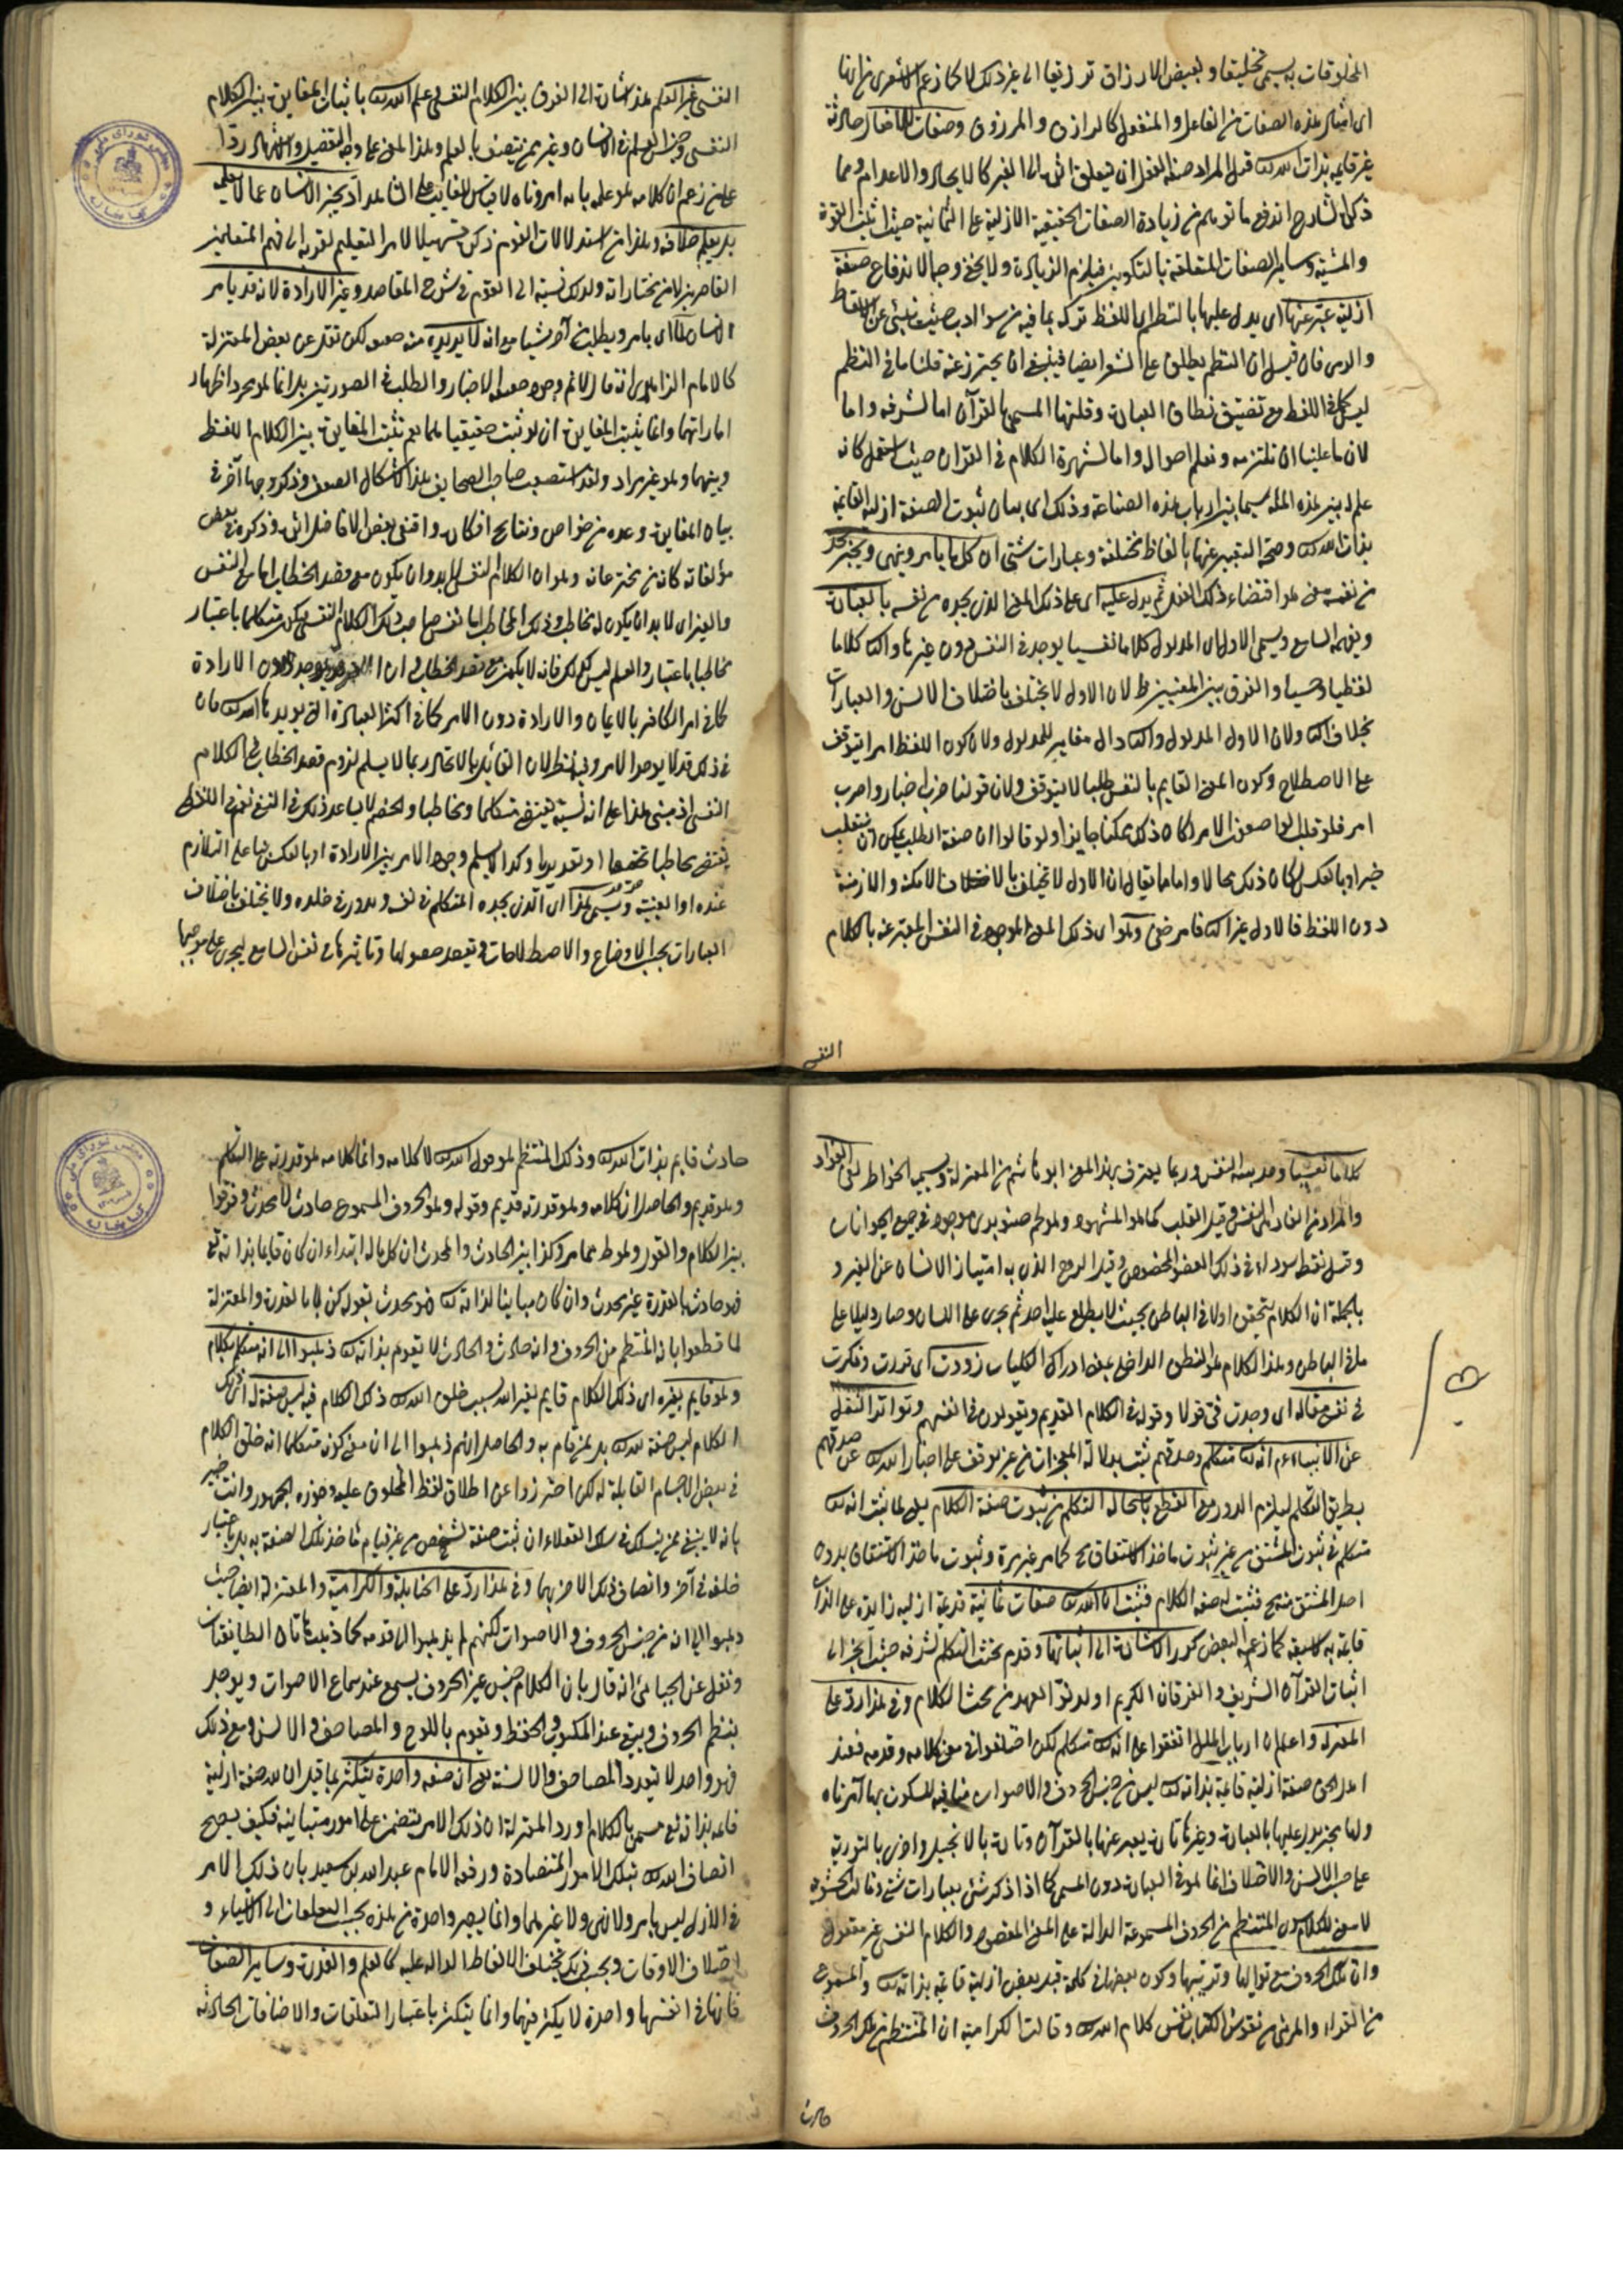 المخلوقات به يسمى تخليقا وبعض الارزاق ترزيقا الى غير ذلك لا كما زعم الاشعرى من انها
اى امثال هذه الصفات من الفاعل والمنفعل كالرازق والمرزوق وصفات الافعال حادثة
غير قايمة بذات الله
ذكره الشارح اندفع ما توهم من زيادة الصفات الحقيقية الازلية على الثمانية حيث اثبت القوة
والمشية وساير الصفات المتعلقة بالتكوين فيلزم الزيادة ولا يخفى وجه الاندفاع صفة
ازلية عبر عنها اى يدل عليها بالنظم اى اللفظ تركه بما فيه من سوء ادب حيث ينبئ عن الاسقاط
والرمى فان قيل ان النظم يطلق على الشعر ايضا فينبغى ان يحترز عنه قلنا ما فى النظم
ليس كما فى اللفظ مع تضييق نطاق العبارة وقلتها المسمى بالقرآن اما لشرفه واما
لان ما علينا ان نلتزمه ونعلم احواله واما لشهرة الكلام فى القرآن حيث استعمل كانه
علم له بين هذه الملة سيما بين ارباب هذه الصناعة وذلك اى بيان ثبوت الصفة ازلية القايمة
بذات الله وصحة التعبير عنها بالفاظ مختلفة وعبارات شتى ان كل من يامر وينهى ويخبر يجد
من نفسه معنى هو اقتضاء ذلك الفعل ثم يدل عليه اى على ذلك المعنى الذى يجده من نفسه بالعبارة
ويفهمه السامع ويسمى الاول اى المدلول كلاما نفسيا يوجد فى النفس دون غيرها والثانى كلاما
لفظيا وحسيا والفرق بين المعنيين ظ لان الاول لا يختلف باختلاف الالسن والعبارات
بخلاف الثانى ولان الاول المدلول والثانى دال مغاير للمدلول ولان كون اللفظ امرا يتوقف
على الاصطلاح وكون المعنى القايم بالنفس طلبا لا يتوقف ولان قولنا ضرب اخبار واضرب
امر فلو قلب الواضع الامر لكان ذلك ممكنا جايزا ولو قالوا ان صفة الطلب يمكن ان ينقلب
خبرا وبالعكس لكان ذلك محالا واما ما يقال ان الاول لا تختلف بالاختلاف الامكنة والازمنة
دون اللفظ فالاول غير الثانى فامر ضرورى وهو اى ذلك المعنى الموجود فى النفس المعبر عنه بالكلام
النفسى
النفسى غير العلم هذا اشارة الى الفرق بين الكلام النفسى وعلم الله باثبات المغايرة بين الكلام
النفسى وجنس العلم فى الانسان وغيره ممن يتصف بالعلم وهذا المعنى على وجه التفصيل والاشهار ردا
على من زعم ان كلامه هو علمه بما به امر ونهاه لا قياس الغايب على الشاهد اذ يخبر الانسان عما لا يعلمه
بل يعلم خلافه وهذا من استدلالات القوم ذكره تسهيلا لامر التعليم لقربه الى فهم المتعلمين
القاصرين لا من مختاراته ولذلك نسبه الى القوم فى شرح المقاصد وغير الارادة لانه قد يامر
الانسان بما اى يامر ويطلب من آخر شيئا مع انه لا يريده منه
كالامام الزاهدى انه قال لانم وجود صيغة الاخبار والطلب فى الصورتين بل انما هو مجرد اظهار
اماراتهما وانما يثبت المغايرة ان لو ثبت حقيقتها فلما لم يثبت المغايرة بين الكلام اللفظى
وبينهما وهو غير مراد ولقد استصعب صاحب الصحايف هذا الاشكال الصعب وذكر وجها آخر فى
بيان المغايرة وعده من خواص ونتايج افكاره واقتفى بعض الافاضل اثره وذكره فى بعض
مؤلفاته كانه من مخترعاته وهو ان الكلام النفسى لابد وان يكون مع قصد الخطاب اما مع النفس
والغير اى لا بد ان يكون له مخاطب وذلك المخاطب اما نفس صاحب ذلك الكلام النفسى فيكون متكلما باعتبار
مخاطبا باعتبار والعلم ليس كذلك فانه لا يكون مع قصد الخطاب دون الارادة
كما فى امر الكافر بالايمان والارادة دون الامر كما فى اكثر العبادة التى يريد
فى ذلك قد لا يوجد الامر وفيه نظر لان القائل بالاتحاد ربما لا يسلم لزوم قصد الخطاب فى الكلام
النفسى اذ مبنى هذا على انه نسبة تقتضى متكلما ومخاطبا والخصم لا يساعد ذلك فى النفسى نعم فى اللفظى
يقتضى مخاطبا تحقيقا او تقديرا وكذا لا يسلم وجود الامر بين الارادة او بالعكس بناء على التلازم
عنده او العينية ويسمى هذا اى الذى يجده المتكلم فى نفسه ويدور فى خلده ولا يختلف باختلاف
العبارات بحسب الاوضاع والاصطلاحات ويقصد حصولها وتاثيرها فى نفس السامع ليجرى على موجبها
كلاما نفسيا وحديث النفس وربما يعترف بهذا المعنى ابو هاشم من المعتزلة ويسميه الخواطر لفى الفؤاد
والمراد من الفؤاد النفس وقيل القلب كما هو المشهور وهو لحم صنوبرى موجود فى جميع الحيوانات
وقيل نقطة سوداء فى ذلك العضو المخصوص وقيل الروح الذى به امتياز الانسان عن الغير و
بالجملة ان الكلام يتحقق اولا فى الباطن بحيث لا يطلع عليه احد ثم يجرى على اللسان وصار دليلا على
ما فى الباطن وهذا الكلام هو النطق الداخلى يعنى ادراك الكليات زورت اى قدرت وفكرت
فى نفسى مقالة اى وجدت فى قولا وقوله فى الكلام القديم ويقولون فى انفسهم وتواتر النقل
عن الانبياء عم انه متكلم وصدقهم ثبت بدلالة المعجزات من غير توقف على اخبار الله عن صدقهم
بطريق التكلم ليلزم الدور مع القطع باستحالة التكلم من ثبوت صفة الكلام يعنى لما ثبت انه
متكلم فى ثبوت المشتق من غير ثبوت ماخذ الاشتقاق مح كما مر غير مرة وثبوت ماخذ الاشتقاق بدون
اصل المشتق منه مح فثبت له صفة الكلام فثبت ان لله صفات ثمانية قديمة ازلية زايدة على الذات
قايمة به كما زعمه البعض كرر الاشارة الى اثباتها وقدم بحث التكلم لشرفه حيث انجر الى
اثبات القرآن الشريف والفرقان الكريم او لدنو العهد من بحث الكلام وفى هذا رد على
المعتزلة واعلم ان ارباب الملل اتفقوا على انه متكلم لكن اختلفوا فى معنى كلامه وقدمه فعند
اهل الحق صفة ازلية قائمة بذاته ليس من جنس الحروف والاصوات منافية للسكوت بها آمر ناه
ولها مخبر يدل عليها بالعبارة وغيرها تارة يعبر عنها بالقرآن وتارة بالانجيل واخرى بالتورية
على حسب الالسن والاختلاف انما هو فى العبارة دون المسمى كما اذا ذكر شئ بعبارات شتى وقالت الحشوية
لا معنى للكلام سوى المنتظم من الحروف المسموعة الدالة على المعنى المقصود والكلام النفسى غير معقول
وان تلك الحروف مع تواليها وترتيبها وكون بعضها فى كلمة قبل بعض ازلية قائمة بذاته والمسموع
من القراء والمرئى من نقوش الكتاب نفس كلام الله وقالت الكرامية ان المنتظم من تلك الحروف
حادث
حادث قايم بذات الله وذلك المنتظم هو قول الله لا كلامه وانما كلامه هو قدرته على التكلم
وهو قديم والحاصل ان كلامه وهو قدرته قديم وقوله وهو الحروف المسموع حادث لا محدث وفرقوا
بين الكلام والقول وهو ظ مما مر وكذا بين الحادث والمحدث ان كل ما له ابتداء ان كان قايما بذاته تع
فهو حادث بالقدرة غير محدث وان كان مباينا لذاته فهو محدث بقوله كن لا بالقدرة والمعتزلة
لما قطعوا بانه المنتظم من الحروف وانه حادث والحادث لا يقوم بذاته ذهبوا الى انه متكلم بكلام
وهو قايم بغيره اى ذلك الكلام قايم لغير الله بسبب خلق الله ذلك الكلام فيه ليس صفة له اى ذلك
الكلام ليس صفة لله بل لمن قام به والحاصل انهم ذهبوا الى ان معنى كونه متكلما انه خلق الكلام
فى بعض الاجسام القابلة له لكن احترزوا عن اطلاق لفظ المخلوق عليه وجوزه الجمهور وانت خبير
بانه لا ينبغى ممن ينسلك فى سلك العقلاء ان يثبت صفة لشخص من غير قيام ماخذ تلك الصفة به بل باعتبار
خلقه فى آخر واتصاف ذلك الاخر بها وفى هذا رد على الحنابلة والكرامية والمعتزلة ايضا حيث
ذهبوا الى انه من جنس الحروف والاصوات لكنهم لم يذهبوا الى قدمه كما ذهبت هاتان الطايفتان
ونقل عن الجبائى انه قال بان الكلام جنس غير الحروف يسمع عند سماع الاصوات ويوجد
بنظم الحروف ويبقى عند المكتوب والحفظ ويقوم باللوح والمصاحف والالسن ومع ذلك
فهو واحد لا يتعدد المصاحف والالسنة صفة واحدة يتكثر لما قيل ان لله صفة ازلية
قايمة بذاته تع مسمى بالكلام اورد المعتزلة ان ذلك الامر يتضمن على امور متباينة فكيف يصح
اتصاف الله بتلك الامور المتضادة ورفعه الامام عبد الله بن سعيد بان ذلك الامر
فى الازل ليس بامر ولا نهى ولا غيرهما وانما يصير واحدة من هذه بحسب التعلقات الى الاشياء و
اختلاف الاوقات وبحسب ذلك يختلف الالفاظ الدالة عليه كالعلم والقدرة وساير الصفات
فانها فى انفسها واحدة لا يكثر فيها وانما يتكثر باعتبار التعلقات والاضافات الحادثة